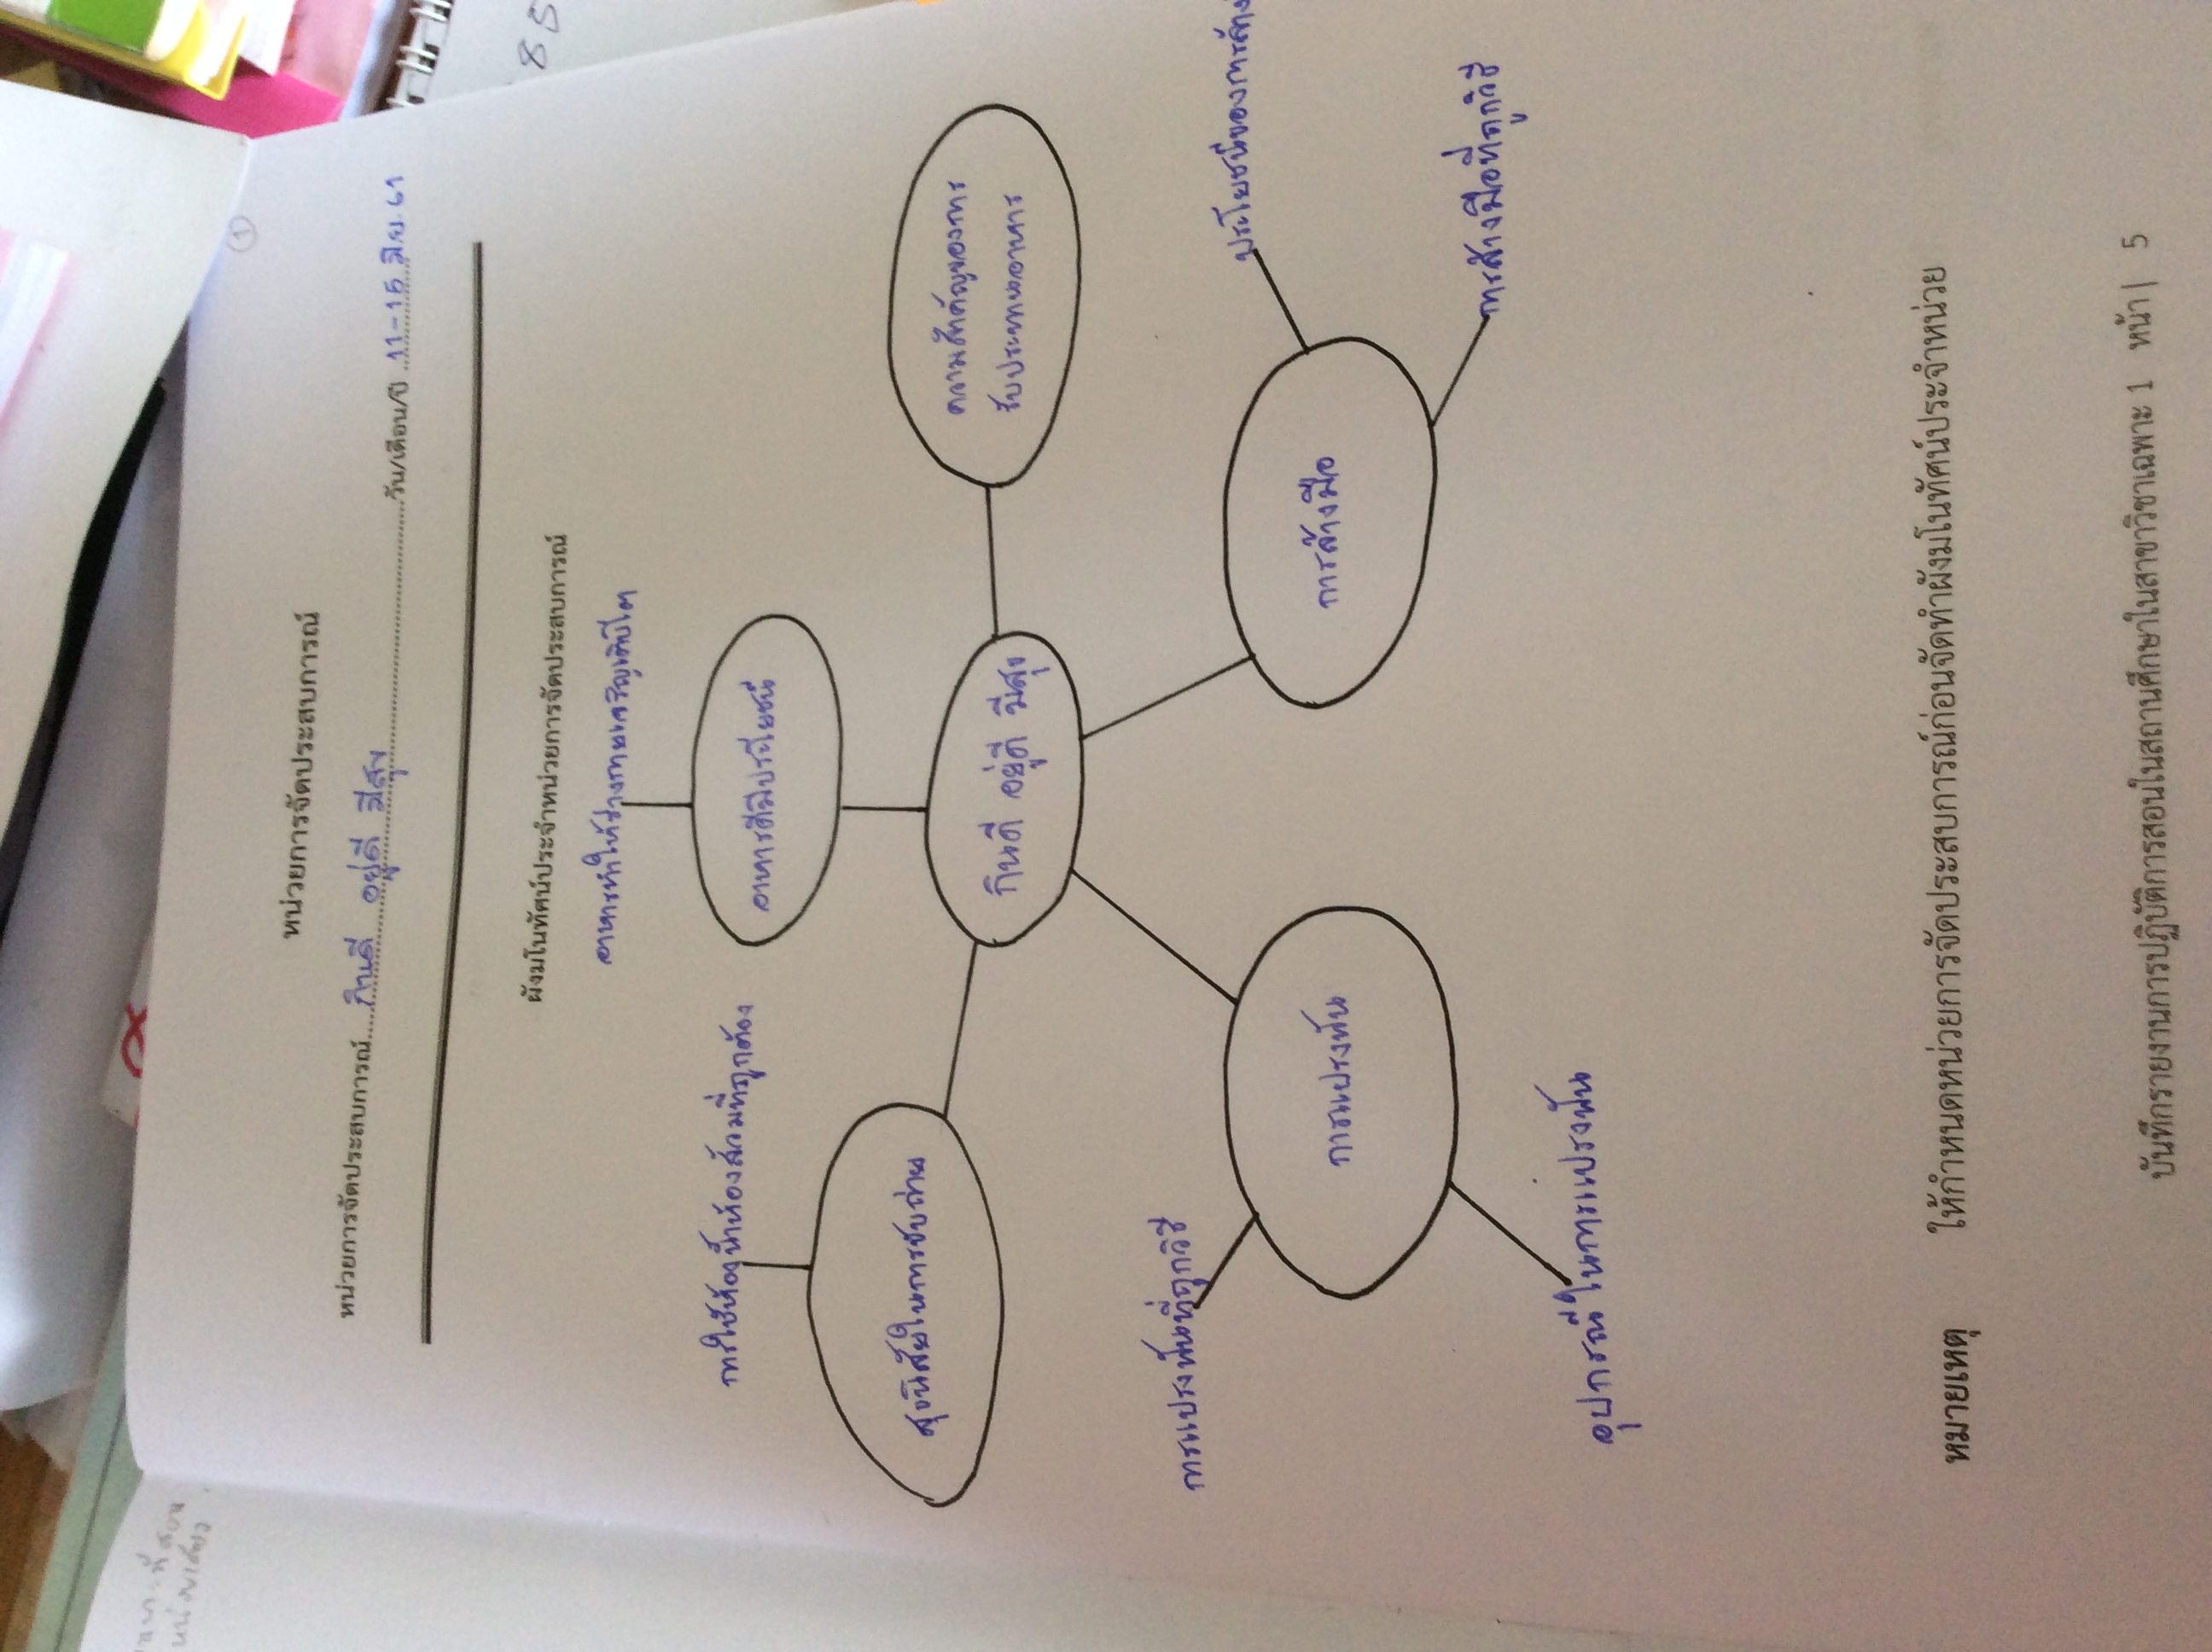 1
หน่วยการจัดประสบการณ์
หน่วยการจัดประสบการณ์.....กินดี อยู่ดี มีสุข.....วัน/เดือน/ปี 11-15 มิ.ย. 61
ผังมโนทัศน์ประจำหน่วยการจัดประสบการณ์
อาหารทำให้ร่างกายเจริญเติบโต
การใช้ห้องน้ำห้องส้วมที่ถูกต้อง
อาหารดีมีประโยชน์
สุขนิสัยในการขับถ่าย
กินดี อยู่ดี มีสุข
ความสำคัญของการ
รับประทานอาหาร
การแปรงฟันที่ถูกวิธี
ประโยชน์ของการล้าง
การแปรงฟัน
การล้างมือ
การล้างมือที่ถูกวิธี
อุปกรณ์ในการแปรงฟัน
หมายเหตุ ให้กำหนดหน่วยการจัดประสบการณ์ก่อนจัดทำผังมโนทัศน์ประจำหน่วย
บันทึกรายงานการปฏิบัติการสอนในสถานศึกษาในสาขาวิชาเฉพาะ 1 หน้า | 5
85